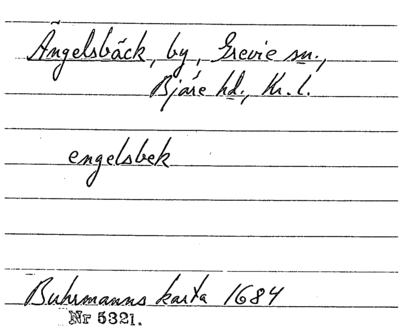 Ängelsbäck, by, Grevie sn.,
Bjäre hd., Kr. l.
engelsbek
Buhrmanns karta 1684
Nr 5321.